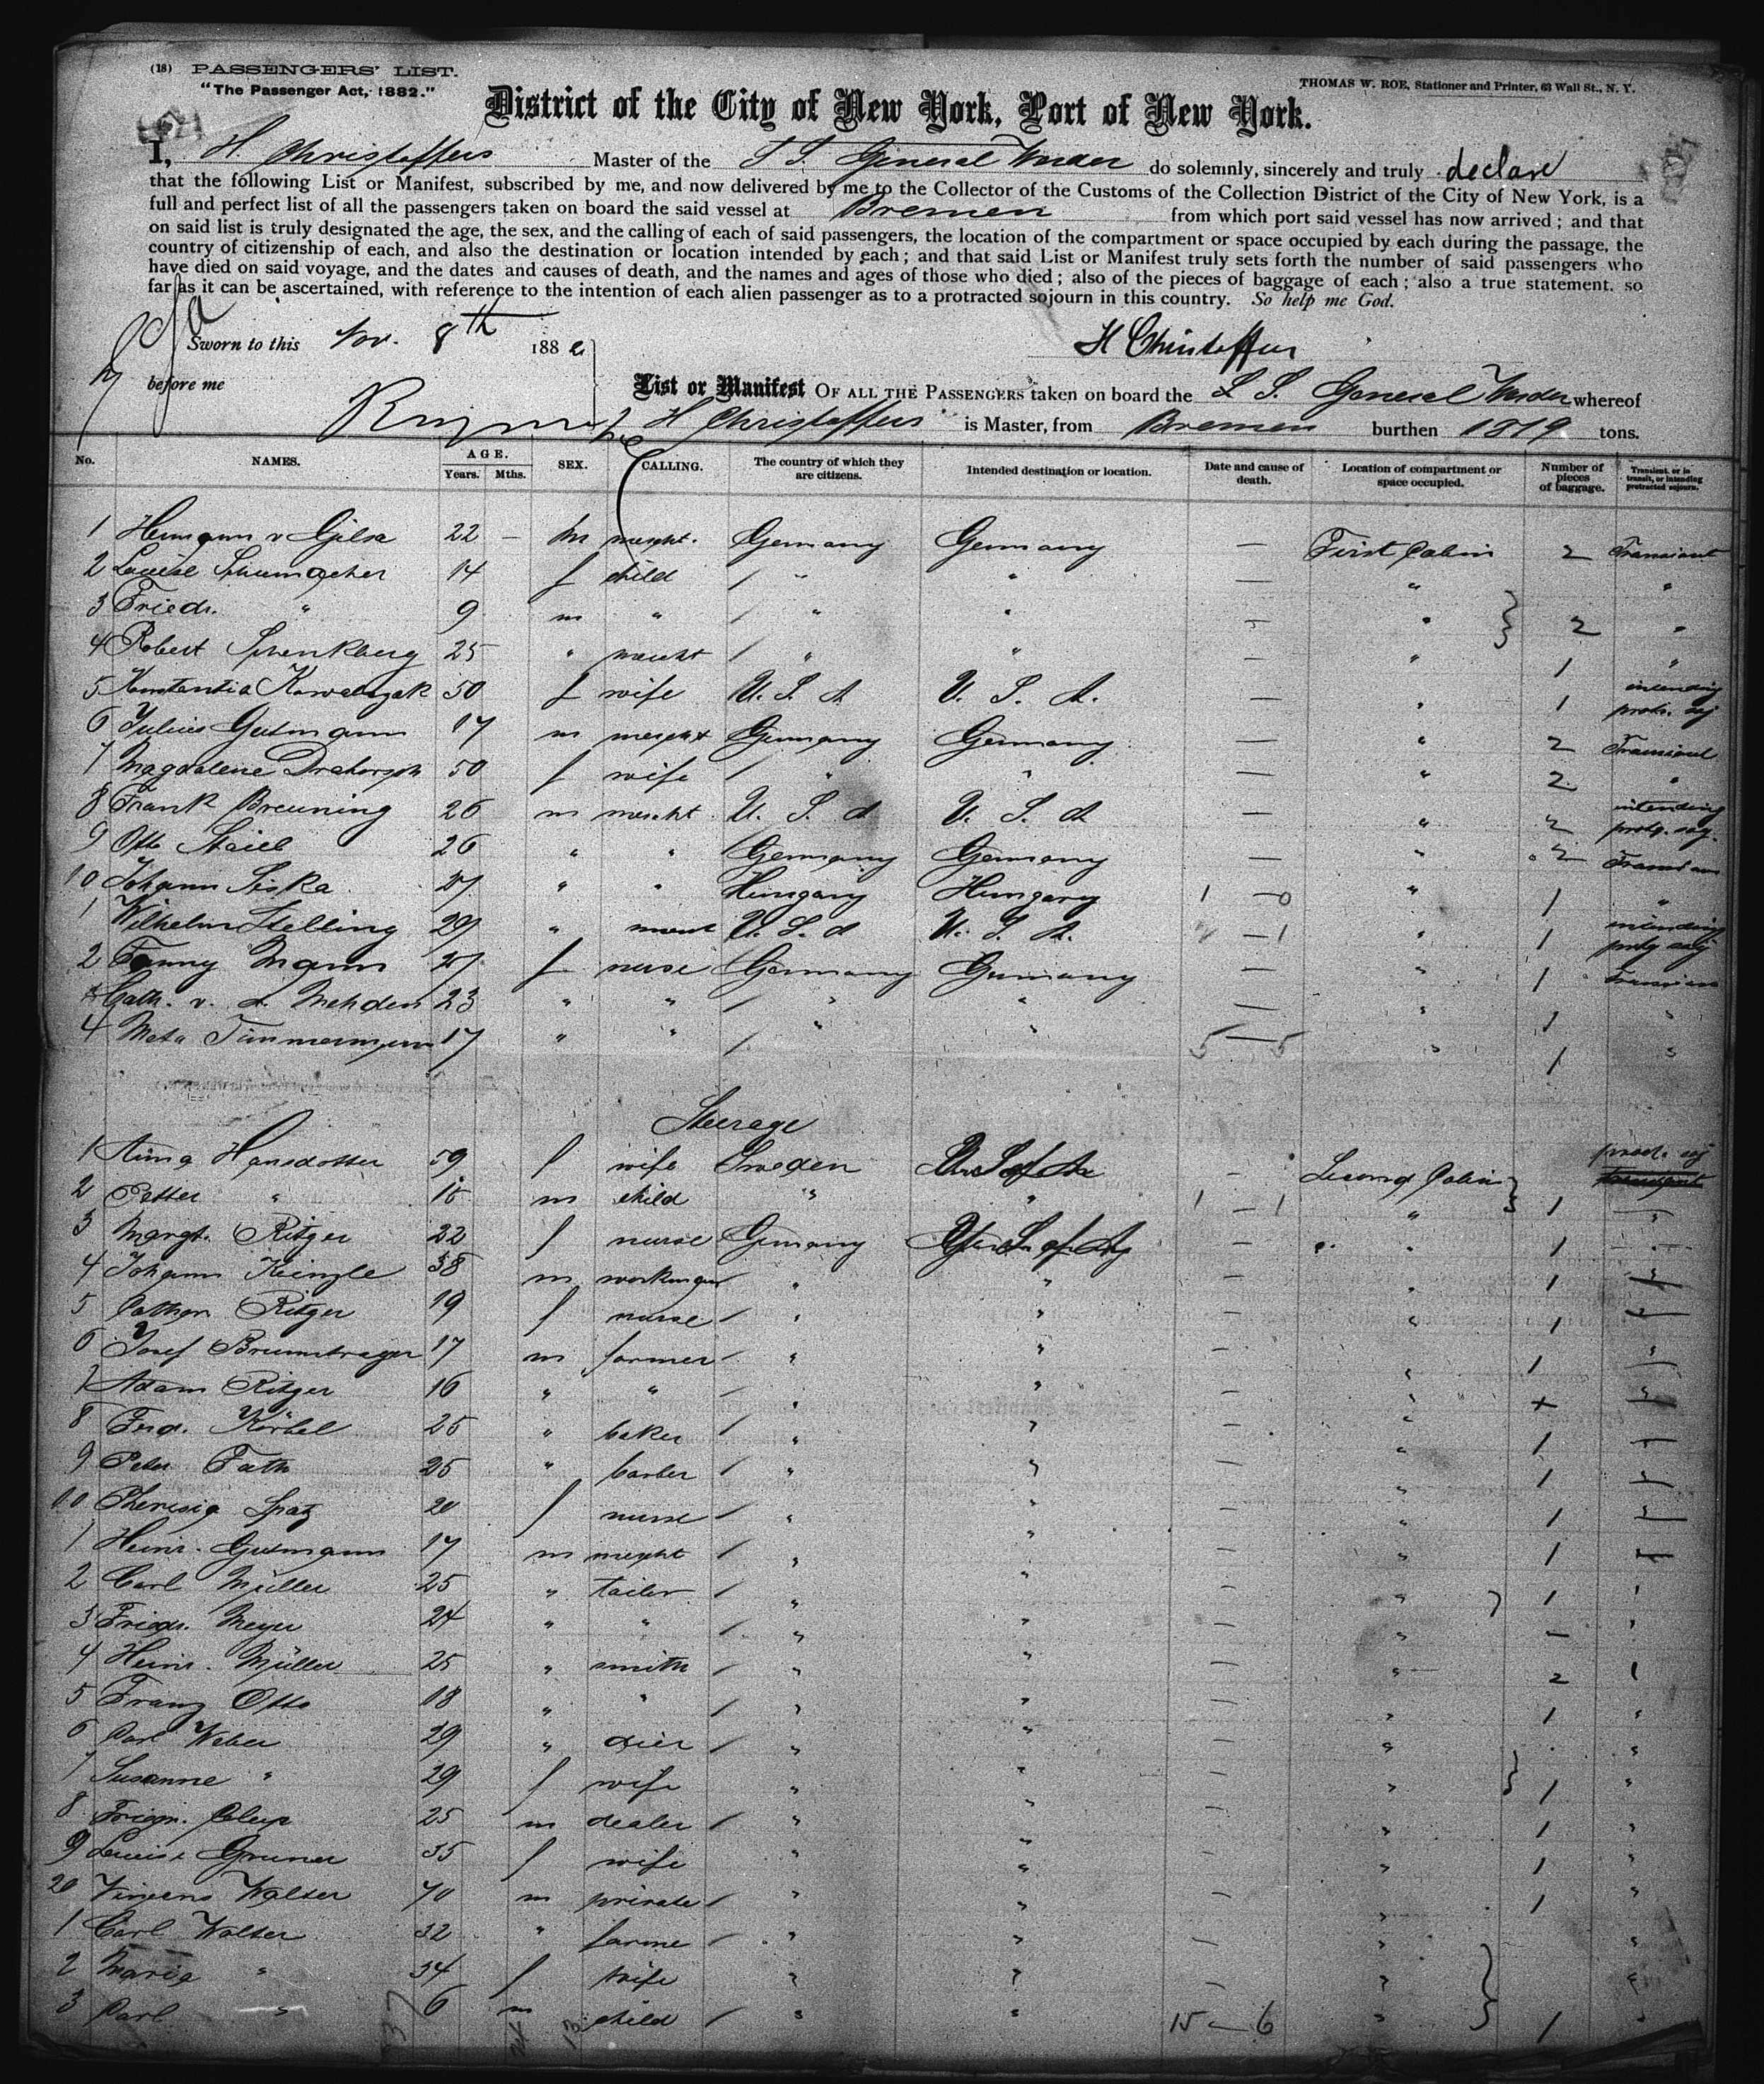 (18) PASSENGERS' LIST.
"The Passenger Act, 1882."
THOMAS W. ROE, Stationer and Printer, 63 Wall St., N. Y.
District of the City of New York, Port of New York.
I, H Christoffers Master of the S S. General Werder do solemnly, sincerely and truly declare
that the following List or Manifest, subscribed by me, and now delivered by me to the Collector of the Customs of the Collection District of the City of New York, is a
full and perfect list of all the passengers taken on board the said vessel at Bremen from which port said vessel has now arrived; and that
on said list is truly designated the age, the sex, and the calling of each of said passengers, the location of the compartment or space occupied by each during the passage, the
country of citizenship of each, and also the destination or location intended by each; and that said List or Manifest truly sets forth the number of said passengers who
have died on said voyage, and the dates and causes of death, and the names and ages of those who died; also of the pieces of baggage of each; also a true statement, so
far as it can be ascertained, with reference to the intention of each alien passenger as to a protracted sojourn in this country. So help me God.
Sworn to this Nov. 8th 1882
H Christoffers
before me
List or Manifest OF ALL THE PASSENGERS taken on board the S S. General Werder whereof
H Christoffers is Master, from Bremen burthen 1819 tons.
No. NAMES. AGE. Years. Mths. SEX. CALLING. The country of which they are citizens. Intended destination or location. Date and cause of death. Location of compartment or space occupied. Number of pieces of baggage. Transient, or in transit, or intending protracted sojourn.
1 Hermann v Gilsa 22 — m mercht. Germany Germany — First Cabin 2 Transient
2 Louise Schumacher 14 f child / " " — " "
3 Friedr. " 9 m " / " " — " 2 "
4 Robert Schenkberg 25 " mercht / " " — " 1 "
5 Konstantia Kowalczak 50 f wife U. S. A U. S. A. — " 1 intending protr. soj
6 Julius Gutmann 17 m mercht Germany Germany — " 2 Transient
7 Magdalene 50 f wife / " " — " 2 "
8 Frank Breuning 26 m mercht U. S. A U. S. A — " 2 intending protr. soj.
9 Otto Staieb 26 " " Germany Germany — " 2 Transient
10 Johann Siska 27 " " Hungary Hungary 1 — 0 " 1 "
1 Wilhelm Stelling 29 " U. S. A U. S. A. — 1 " 1 intending protr soj
2 Fanny Mann 27 f nurse Germany Germany — " 1 Transient
Cath. v. d. Mehden 23 " " / " " — " 1 "
4 Meta Timmermann 17 " " / " " 5 — 5 " 1 "
Steerage
1 Anna Hansdotter 59 f wife Sweden U. S. of A — Second Cabin protr. soj
2 Petter " m child " " 1 — 1 " 1 "
3 Margt. Ritger 22 f nurse Germany U. S. of A — " 1 "
4 Johann Kienzle 38 m workman / " " — " 1 "
5 Cathar Ritger 19 f nurse / " " — " 1 "
6 Josef Brumstrager 17 m farmer / " " — " 1 "
7 Adam Ritger 16 " " / " " — " + "
8 Ferd. Körbel 25 " baker / " " — " 1
9 Peter Fath 25 " barber / " " — " 1
10 Theresia Spatz 20 f nurse / " " — " 1
1 Heinr. Gutmann 17 m mercht / " " — " 1
2 Carl Müller 25 " tailor / " " — " 1 "
3 Friedr. Meyer 24 " " / " " — " — "
4 Heinr. Müller 25 " smith / " " — " 2 "
5 Franz Otto 18 " " / " " — " 1 "
6 Carl Weber 29 " dier / " " — " "
7 Susanne " 29 f wife " " — " 1 "
8 25 m dealer / " " — " 1 "
9 Louise Gruner 35 f wife " " — " 1 "
20 Vincens Walter 70 m private / " " — " 1 "
1 Carl Walter 32 " farmer / " " — " "
2 Maria " 34 f wife " " — " "
3 Carl " 6 m child / " " 15 — 6 " 1 "